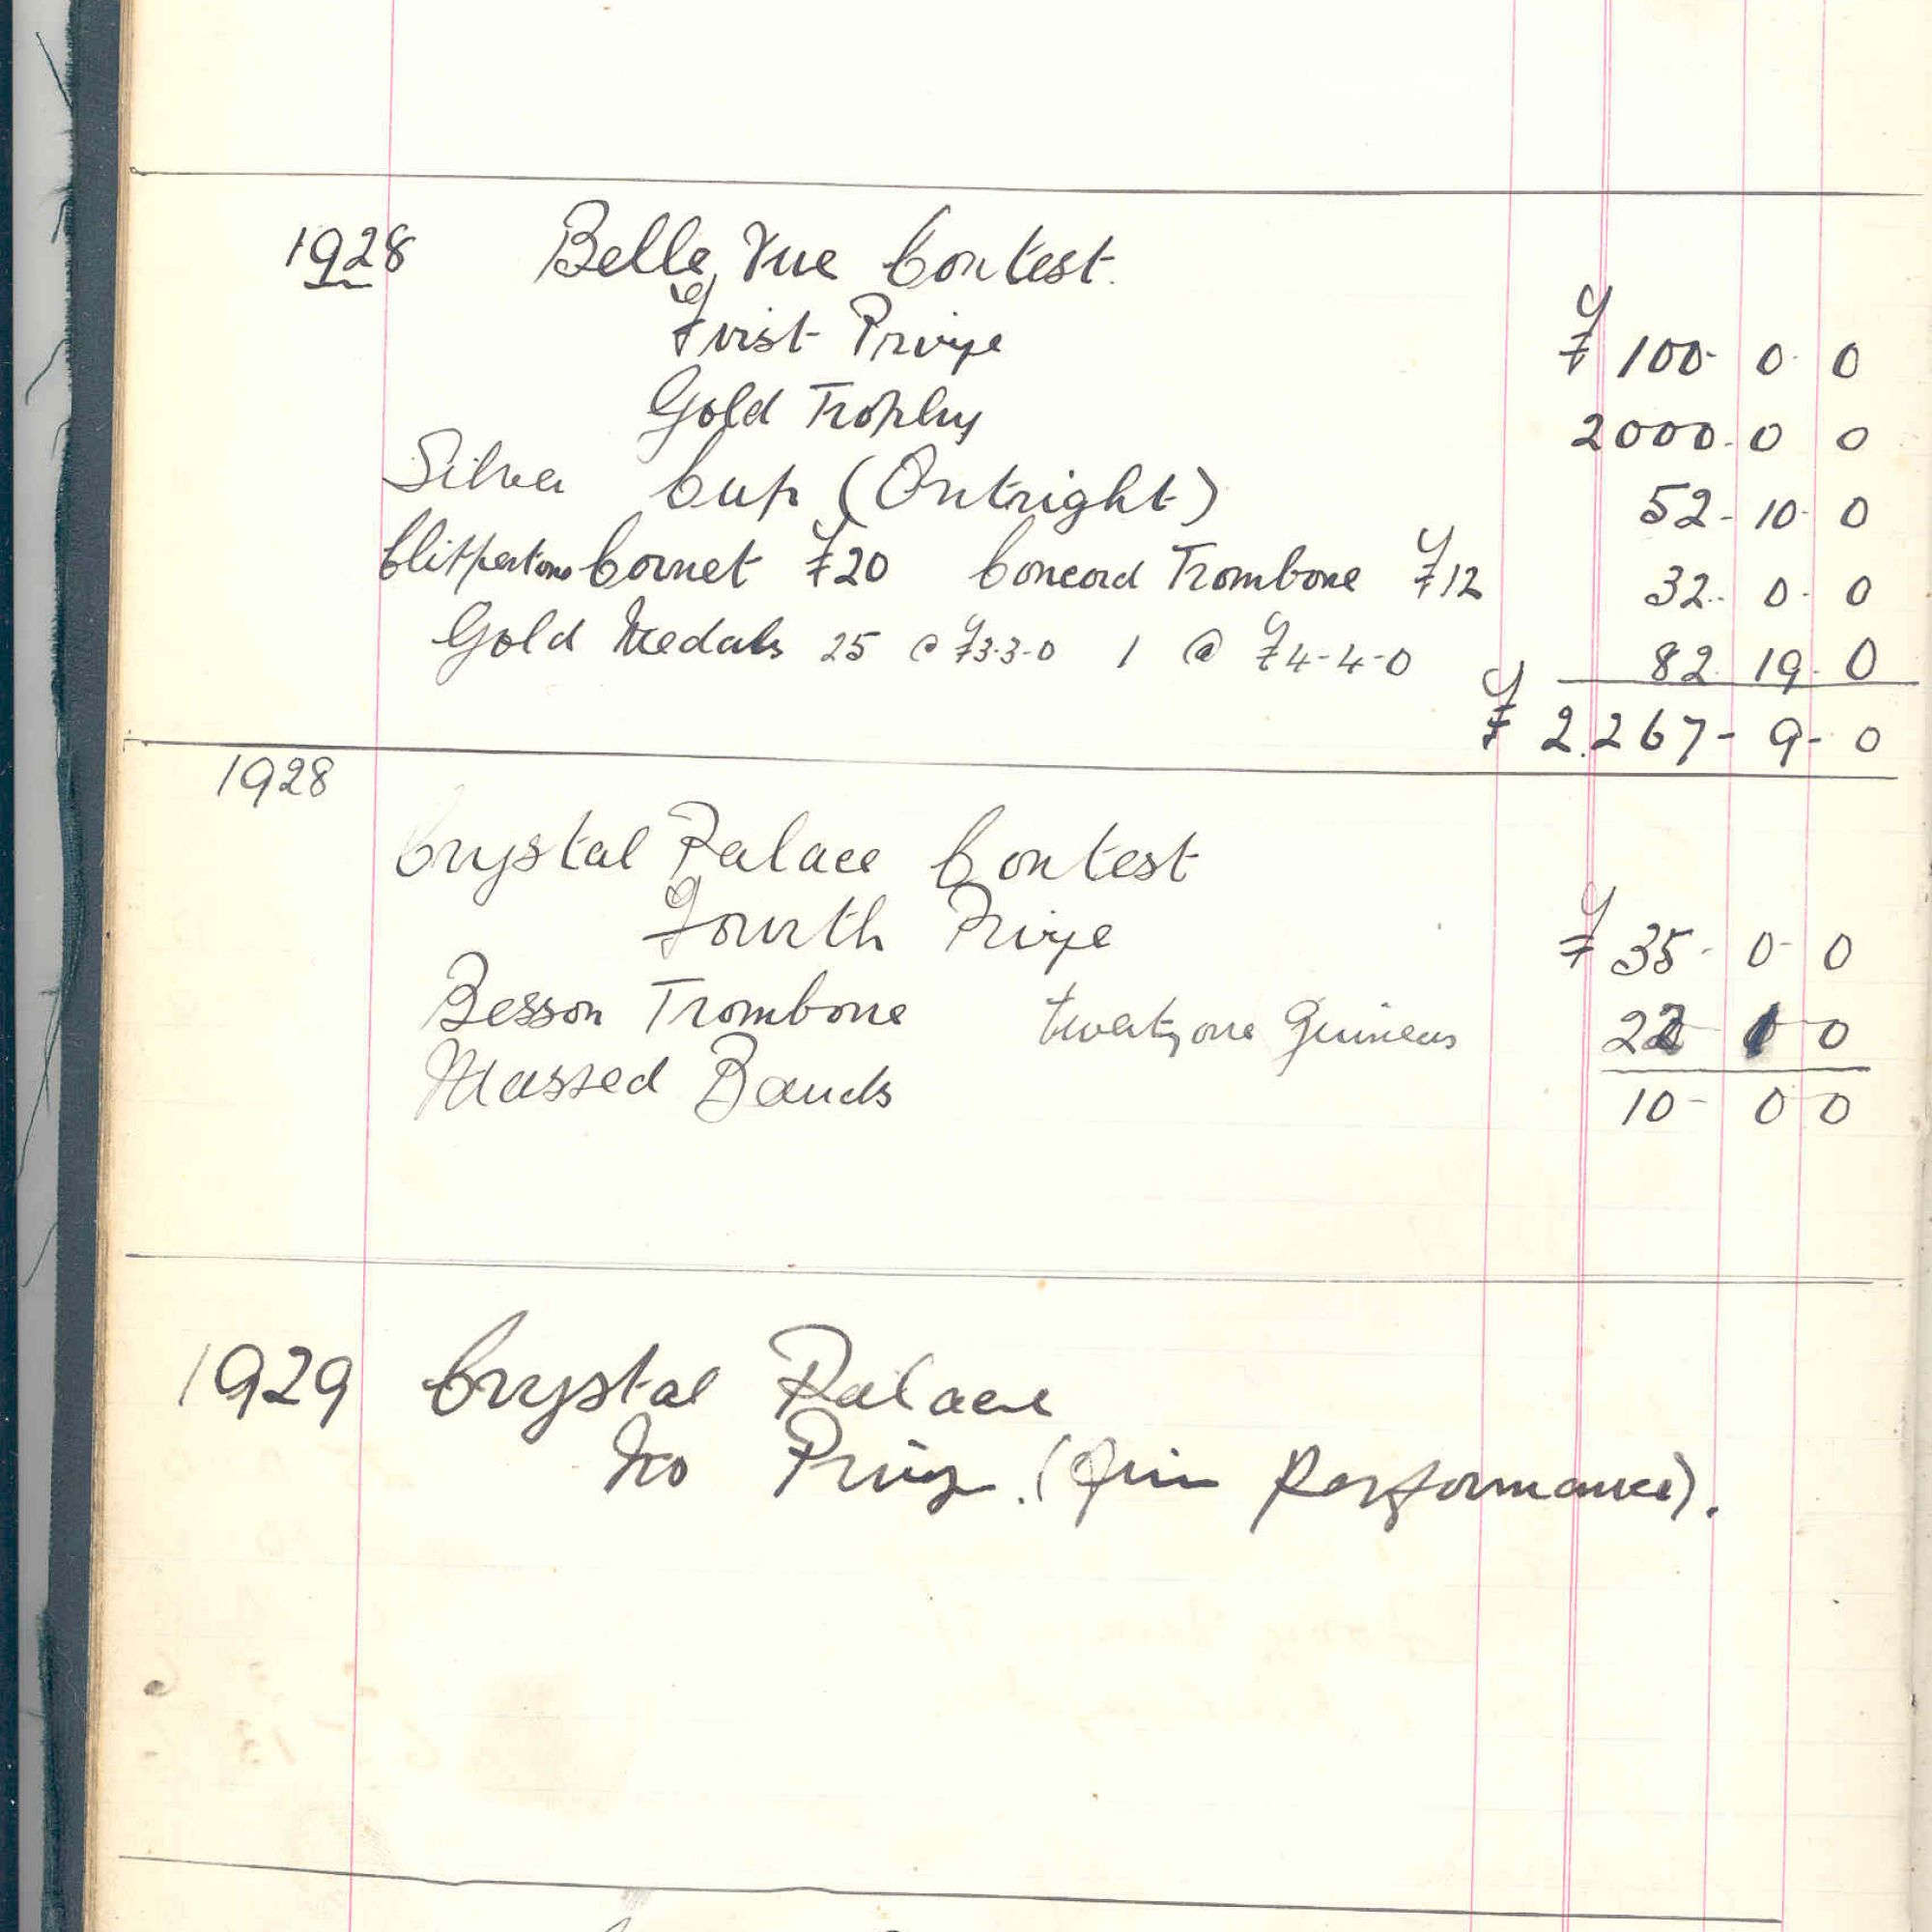 1928 Belle Vue Contest.
First Prize £100-0-0
Gold Trophy 2000-0 0
Silver Cup (Outright) 52-10-0
Clippertone Cornet £20 Concord Trombone £12 32-0-0
Gold Medals 25 @ £3-3-0 1 @ £4-4-0 82.19.0
£2.267-9-0
1928
Crystal Palace Contest
Fourth Prize £35-0-0
Besson Trombone twenty one Guineas 22 1-0
Massed Bands 10-0-0
1929 Crystal Palace
No Prize. (Fine Performance).